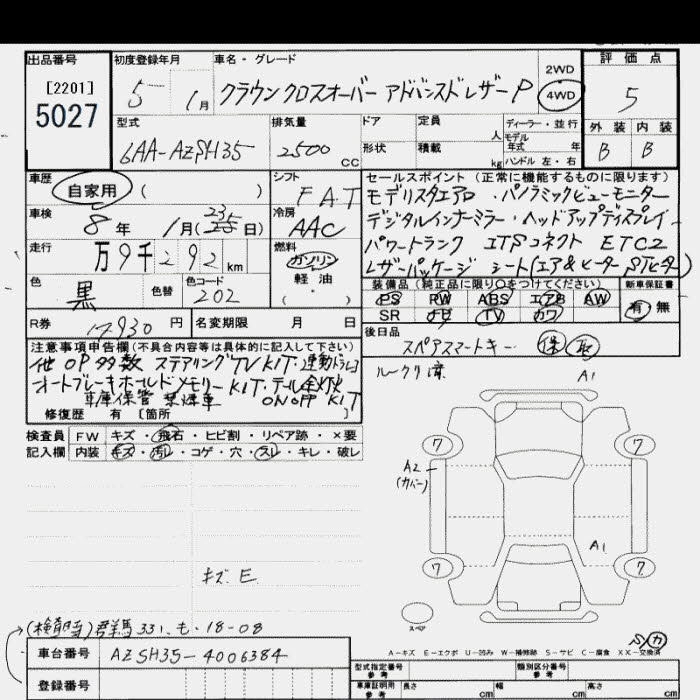 出品番号 初度登録年月 車名・グレード 評価点
[2201]
5027
5年 1月 クラウン クロスオーバー アドバンスドレザーP 2WD 4WD 5
型式 排気量 ドア 定員 人 ディーラー・並行 外装 内装
モデル年式 年
6AA-AZSH35 2500 CC 形状 積載 kg ハンドル 左・右 B B
車歴 シフト セールスポイント (正常に機能するものに限ります)
自家用 ( ) FAT モデリスタエアロ・パノラミックビューモニター
車検 冷房 デジタルインナーミラー・ヘッドアップディスプレイ
8年 1月( 日) AAC パワートランク ITSコネクト ETC2
走行 燃料 レザーパッケージ シート(エア&ヒーター STヒーター)
万9千292km ガソリン 軽油 ( ・ )
装備品 (純正品に限り○をつけてください) 新車保証書
色 黒 色替 色コード 202
PS PW ABS エアB AW 有・無
SR ナビ TV カワ
R券 17,930円 名変期限 月 日
後日品 スペアスマートキー 保 取
注意事項申告欄 (不具合内容等は具体的に記入して下さい)
他 OP多数 ステアリング TV KIT・連動ドラレコ
オートブレーキホールドメモリーKIT・テール全灯火
車庫保管 禁煙車 ON OFF KIT
修復歴 有 [箇所 ]
ルークリ済
検査員 FW キズ・飛石・ヒビ割・リペア跡・×要
記入欄 内装 キズ・汚れ・コゲ・穴・スレ・キレ・破レ
A1
7 7
A2
(カバー)
A1
7 7
キズ E
スペア
(検査時) 群馬 331 も・18-08
車台番号 AZSH35-4006384
登録番号
A-キズ E-エクボ U-凹み W-補修跡 S-サビ C-腐食 XX-交換済
型式指定番号 参考 類別区分番号 参考
車庫証明用 参考 長さ cm 幅 cm 高さ cm